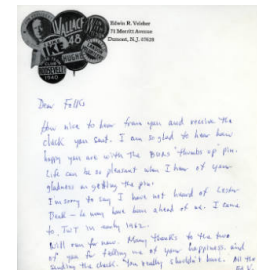 WALLACE
48
1940
Edwin R. Yeicker
71 Merritt Avenue
Dumont, N.J. 07628
Dear Folks
How nice to hear from you and receive the
check you sent. I am so glad to hear how
happy you are with the BUGS "thumbs up" pin.
Life can be so pleasant when I hear of your
gladness in getting the pin.
I'm sorry to say I have not heard of Lester
Deak - he may have been ahead of me. I came
to in early 1942.
Will run for now. Many thanks to the two
of you for telling me of your happiness and
sending the check. You really shouldn't have. All the